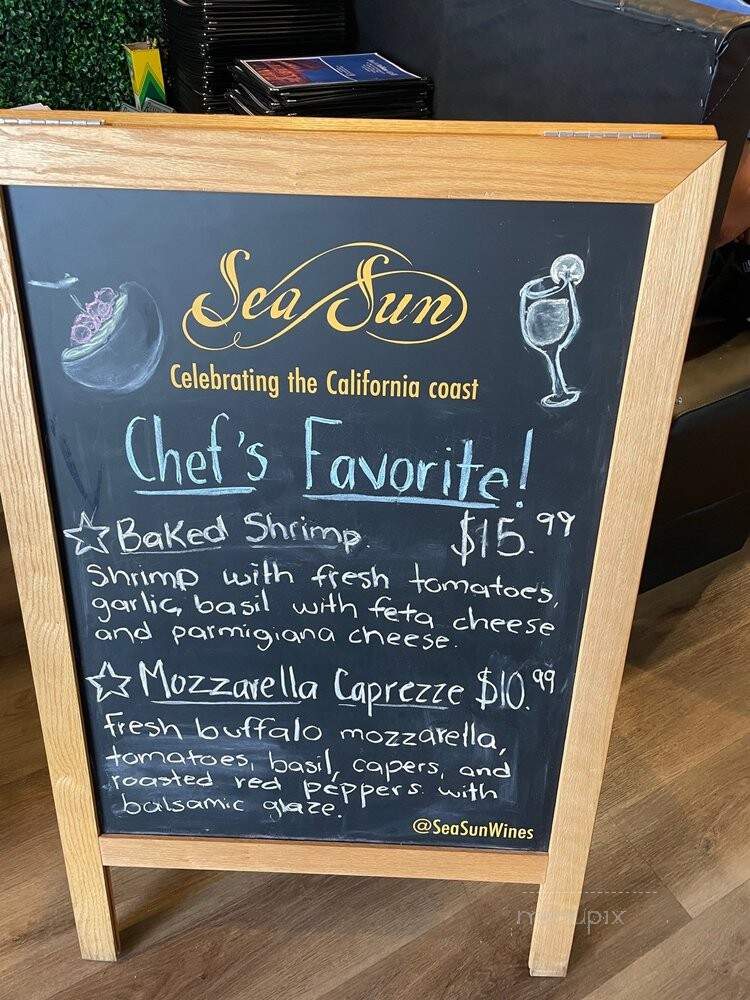 Sea Sun
Celebrating the California coast
Chef's Favorite!
Baked Shrimp. $15.99
Shrimp with fresh tomatoes,
garlic, basil with feta cheese
and parmigiana cheese.
Mozzarella Caprezze $10.99
fresh buffalo mozzarella,
tomatoes, basil, capers, and
roasted red peppers with
balsamic glaze.
@SeaSunWines
menupix